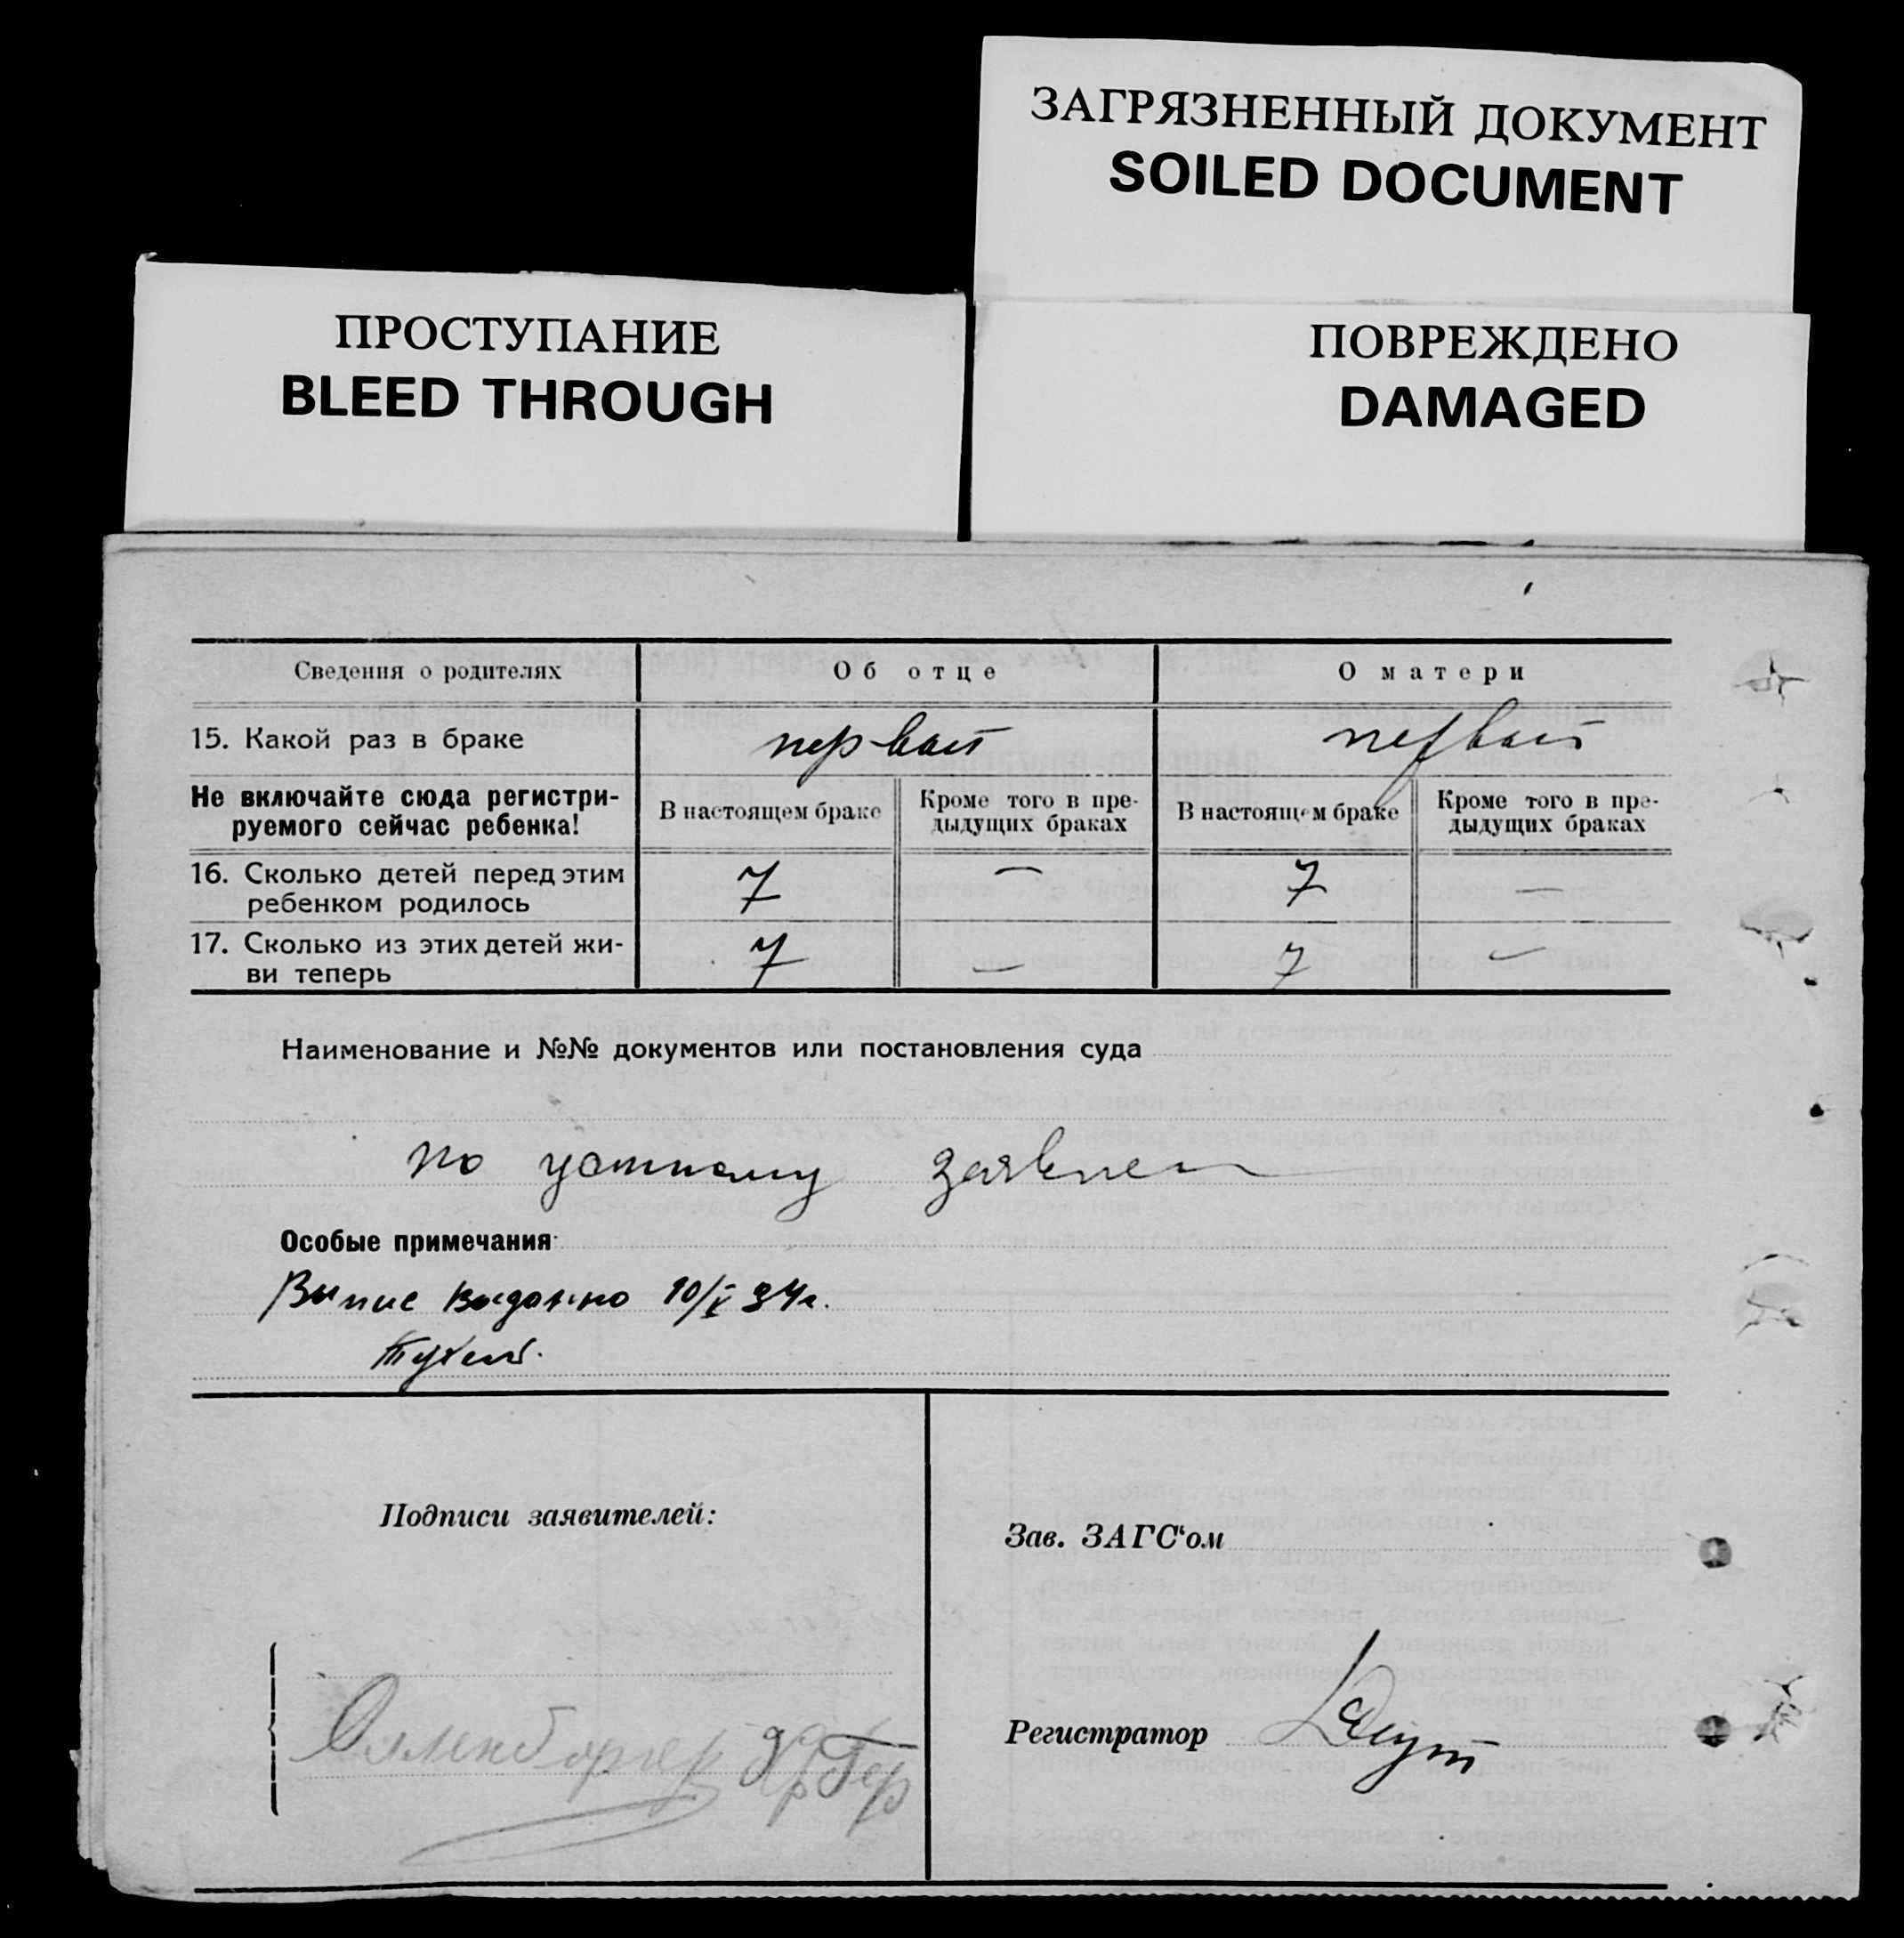 ЗАГРЯЗНЕННЫЙ ДОКУМЕНТ
SOILED DOCUMENT
ПРОСТУПАНИЕ
BLEED THROUGH
ПОВРЕЖДЕНО
DAMAGED
Сведения о родителях Об отце О матери
15. Какой раз в браке первый первый
Не включайте сюда регистри-
руемого сейчас ребенка!
В настоящем браке
Кроме того в пре-
дыдущих браках
В настоящем браке
Кроме того в пре-
дыдущих браках
16. Сколько детей перед этим
ребенком родилось
7 — 7 —
17. Сколько из этих детей жи-
ви теперь
7 — 7 —
Наименование и №№ документов или постановления суда
по устному заявлен
Особые примечания
Выпис выданно 10/X 34г.
Подписи заявителей:
Зав. ЗАГС'ом
Регистратор